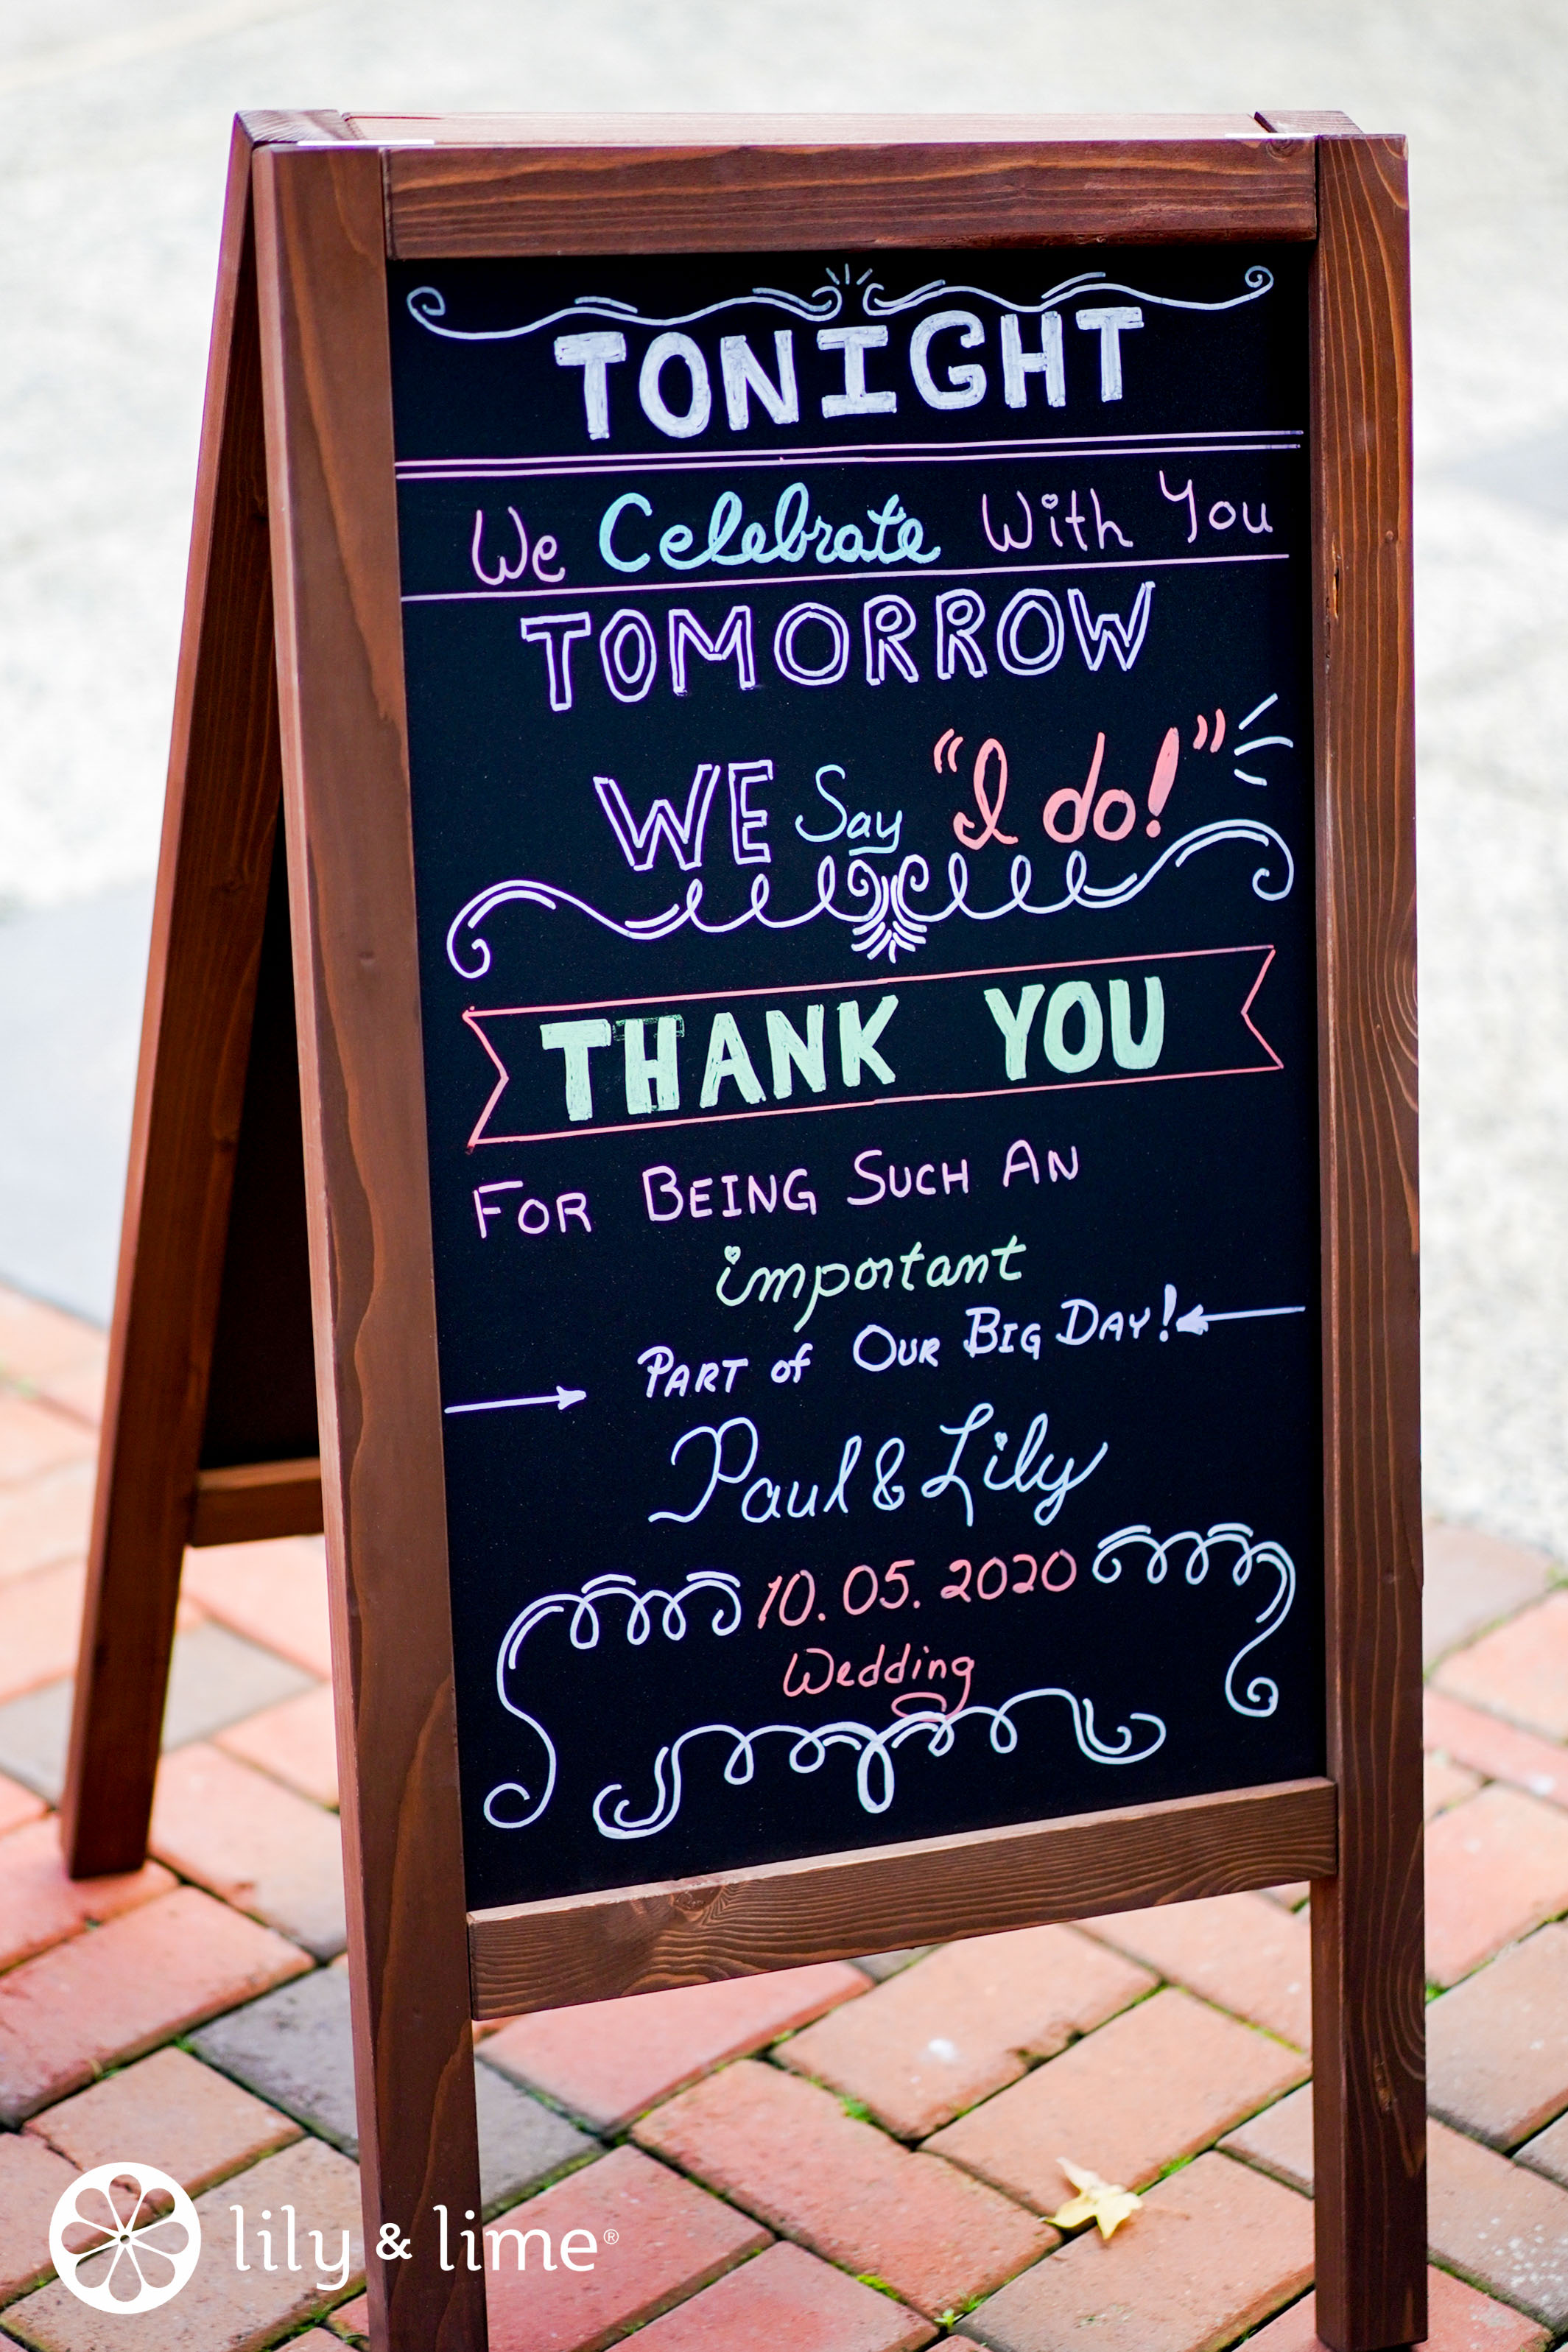 TONIGHT
We Celebrate With You
TOMORROW
WE Say "I do!"
THANK YOU
FOR BEING SUCH AN
important
PART of OUR BIG DAY!
Paul & Lily
10.05.2020
Wedding
lily & lime®